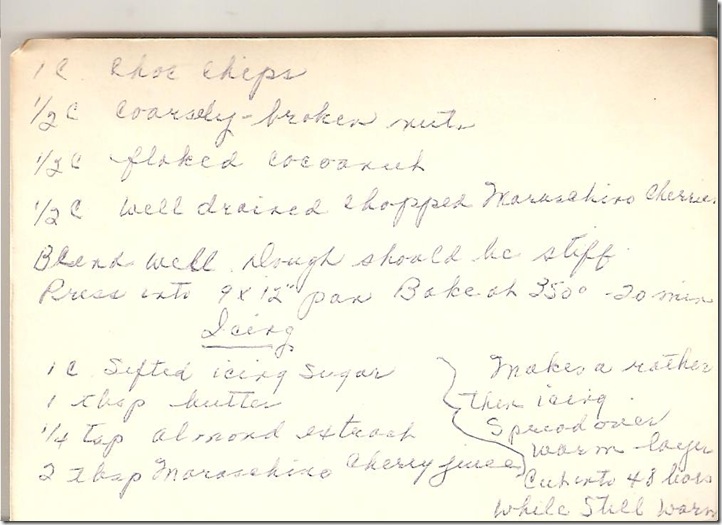 1 C Choc Chips
1/2 C coarsely-broken nuts
1/2 C flaked cocoanut
1/2 C well drained chopped Maraschino Cherries
Blend well. Dough should be stiff.
Press into 9 x 12" pan Bake at 350° - 20 min
Icing
1 C Sifted icing sugar
1 tbsp butter
1/4 tsp almond extract
2 tbsp Maraschino Cherry juice
Makes a rather
thin icing.
Spread over
warm layer
Cut into 48 bars
while still warm